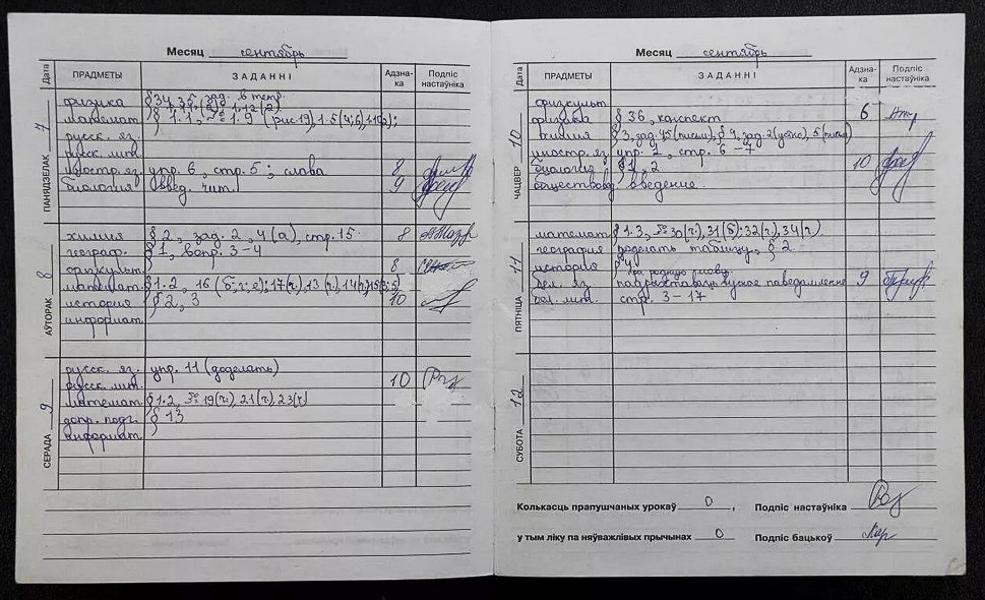 Месяц сентябрь
Дата ПРАДМЕТЫ ЗАДАННІ Адзнака Подпіс настаўніка
ПАНЯДЗЕЛАК 7
физика § 34, 35, зад. в тетр.
математ. § 1.1, № 1.9 (рис.19), 1.5(4;6), 1.12(2)
русск. яз.
русск. лит.
иностр. яз. упр. 6, стр. 5; слова 8
биология введ. чит. 9
АЎТОРАК 8
химия § 2, зад. 2, 4(а), стр. 15 8
географ. § 1, вопр. 3-4
физкульт. 8
математ. § 1.2, 16 (б; г; е); 17(г), 13(г), 14(г)
история § 2, 3 10
информат.
СЕРАДА 9
русск. яз. упр. 11 (доделать)
русск. лит. 10
математ. § 1.2, № 19(г), 21(г), 23(г)
допр. подг. § 13
информат.
Месяц сентябрь
Дата ПРАДМЕТЫ ЗАДАННІ Адзнака Подпіс настаўніка
ЧАЦВЕР 10
физкульт.
физика § 36, конспект 6
химия § 3, зад. 4,5 (письм), § 4, зад. 2(устно), 5(письм)
иностр. яз. упр. 2, стр. 6-7
биология § 1, 2 10
обществов. введение
ПЯТНІЦА 11
математ. § 1.3, № 30(г), 31(б); 32(г), 34(г)
география доделать таблицу, § 2
история § 4
бел. яз. падрыхтаваць вуснае паведамленне 9
пра родную мову
бел. літ. стр. 3-17
СУБОТА 12
Колькасць прапушчаных урокаў 0, Подпіс настаўніка
у тым ліку па няўважлівых прычынах 0 Подпіс бацькоў